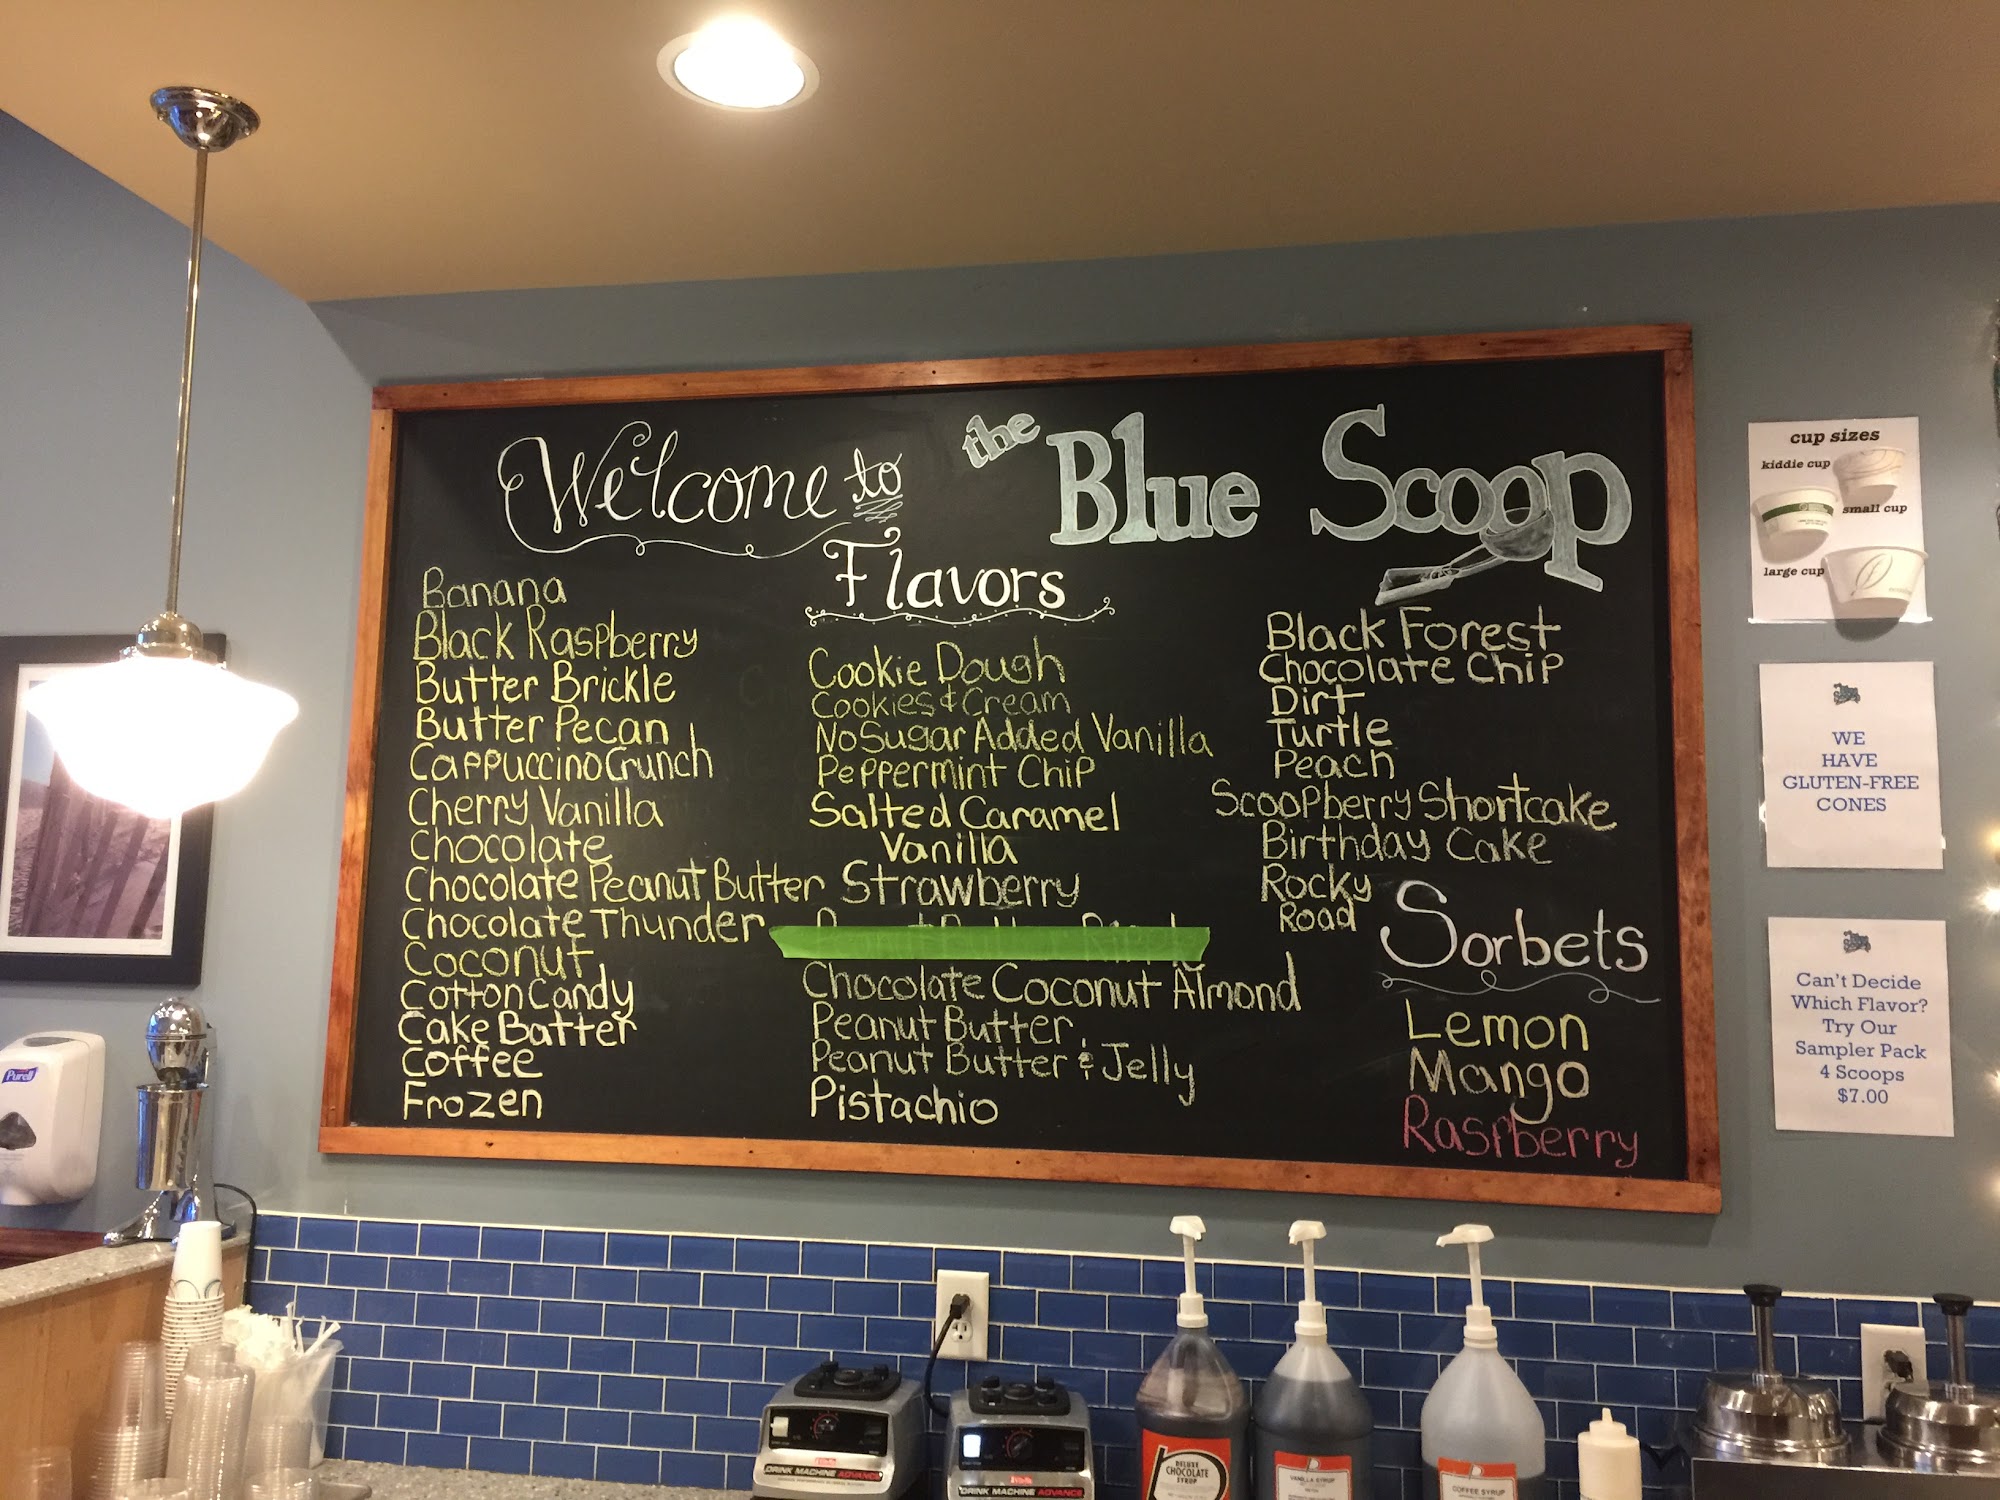 Welcome to the Blue Scoop
Flavors
Banana
Black Raspberry
Butter Brickle
Butter Pecan
Cappuccino Crunch
Cherry Vanilla
Chocolate
Chocolate Peanut Butter
Chocolate Thunder
Coconut
Cotton Candy
Cake Batter
Coffee
Frozen
Cookie Dough
Cookies & Cream
No Sugar Added Vanilla
Peppermint Chip
Salted Caramel
Vanilla
Strawberry
Chocolate Coconut Almond
Peanut Butter
Peanut Butter & Jelly
Pistachio
Black Forest
Chocolate Chip
Dirt
Turtle
Peach
Scoopberry Shortcake
Birthday Cake
Rocky
Road
Sorbets
Lemon
Mango
Raspberry
cup sizes
kiddie cup
small cup
large cup
WE
HAVE
GLUTEN-FREE
CONES
Can't Decide
Which Flavor?
Try Our
Sampler Pack
4 Scoops
$7.00
Purell
DRINK MACHINE ADVANCE
DRINK MACHINE ADVANCE
DELUXE
CHOCOLATE
SYRUP
VANILLA SYRUP
COFFEE SYRUP